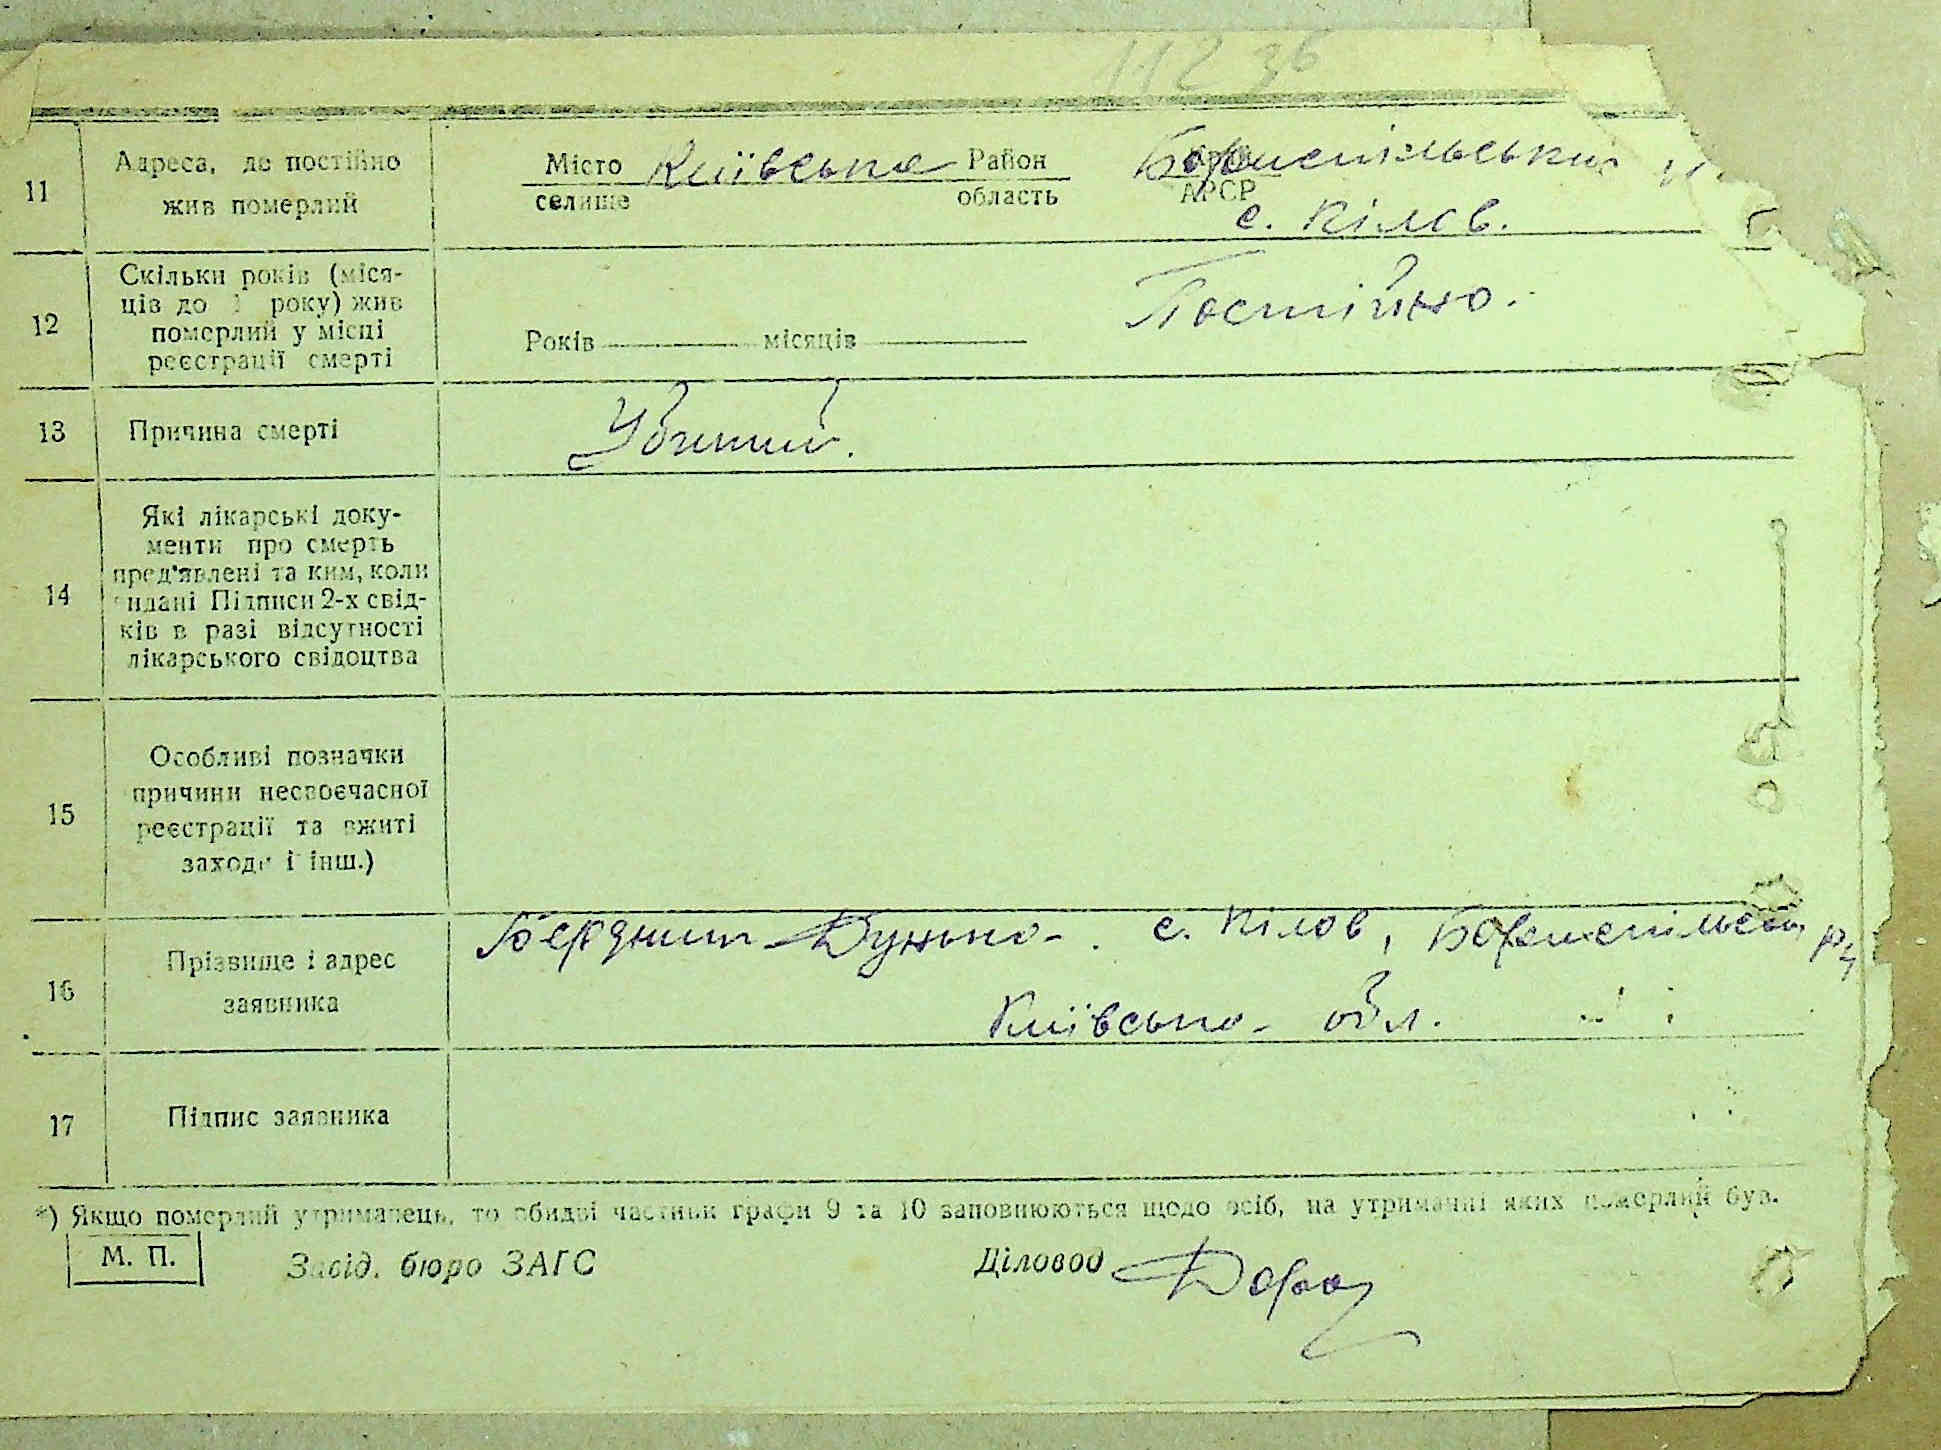 112 36
11
Адреса, де постійно жив померлий
Місто Київська Район Бориспільський
селище область АРСР
с. Кілов.
12
Скільки років (міся-
ців до 1 року) жив
померлий у місці
реєстрації смерті
Років місяців Постійно.
13
Причина смерті
Убитий.
14
Які лікарські доку-
менти про смерть
пред'явлені та ким, коли
видані Підписи 2-х свід-
ків в разі відсутності
лікарського свідоцтва
15
Особливі позначки
причини несвоєчасної
реєстрації та вжиті
заходи і інш.)
16
Прізвище і адрес
заявника
Бердник Дунька. с. Кілов, Бориспільськ
Київська обл.
17
Підпис заявника
*) Якщо померлий утриманець, то обидві частини графи 9 та 10 заповнюються щодо осіб, на утриманні яких померлий був.
М. П. Завід. бюро ЗАГС Діловод